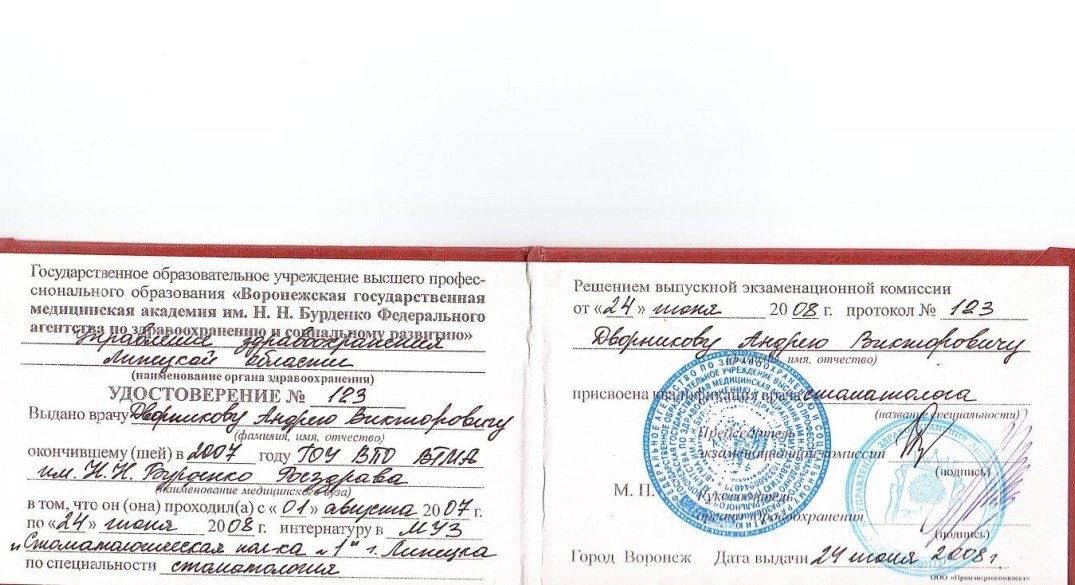 Государственное образовательное учреждение высшего профес-
сионального образования «Воронежская государственная
медицинская академия им. Н. Н. Бурденко Федерального
агентства по здравоохранению и социальному развитию»
Управление здравоохранения
Липецкой области
(наименование органа здравоохранения)
УДОСТОВЕРЕНИЕ № 123
Выдано врачу Дворникову Андрею Викторовичу
(фамилия, имя, отчество)
окончившему (шей) в 2007 году ГОУ ВПО ВГМА
им. Н.Н. Бурденко Росздрава
(наименование медицинского вуза)
в том, что он (она) проходил(а) с «01» августа 2007 г.
по «24» июня 2008 г. интернатуру в МУЗ
"Стоматологическая пол-ка №1" г. Липецка
по специальности стоматология
Решением выпускной экзаменационной комиссии
от «24» июня 2008 г. протокол № 123
Дворникову Андрею Викторовичу
имя, отчество)
присвоена квалификация врача стоматолога
(название специальности)
Председатель
экзаменационной комиссии
(подпись)
М. П.
Руководитель
органа здравоохранения
(подпись)
Город Воронеж Дата выдачи 24 июня 2008 г